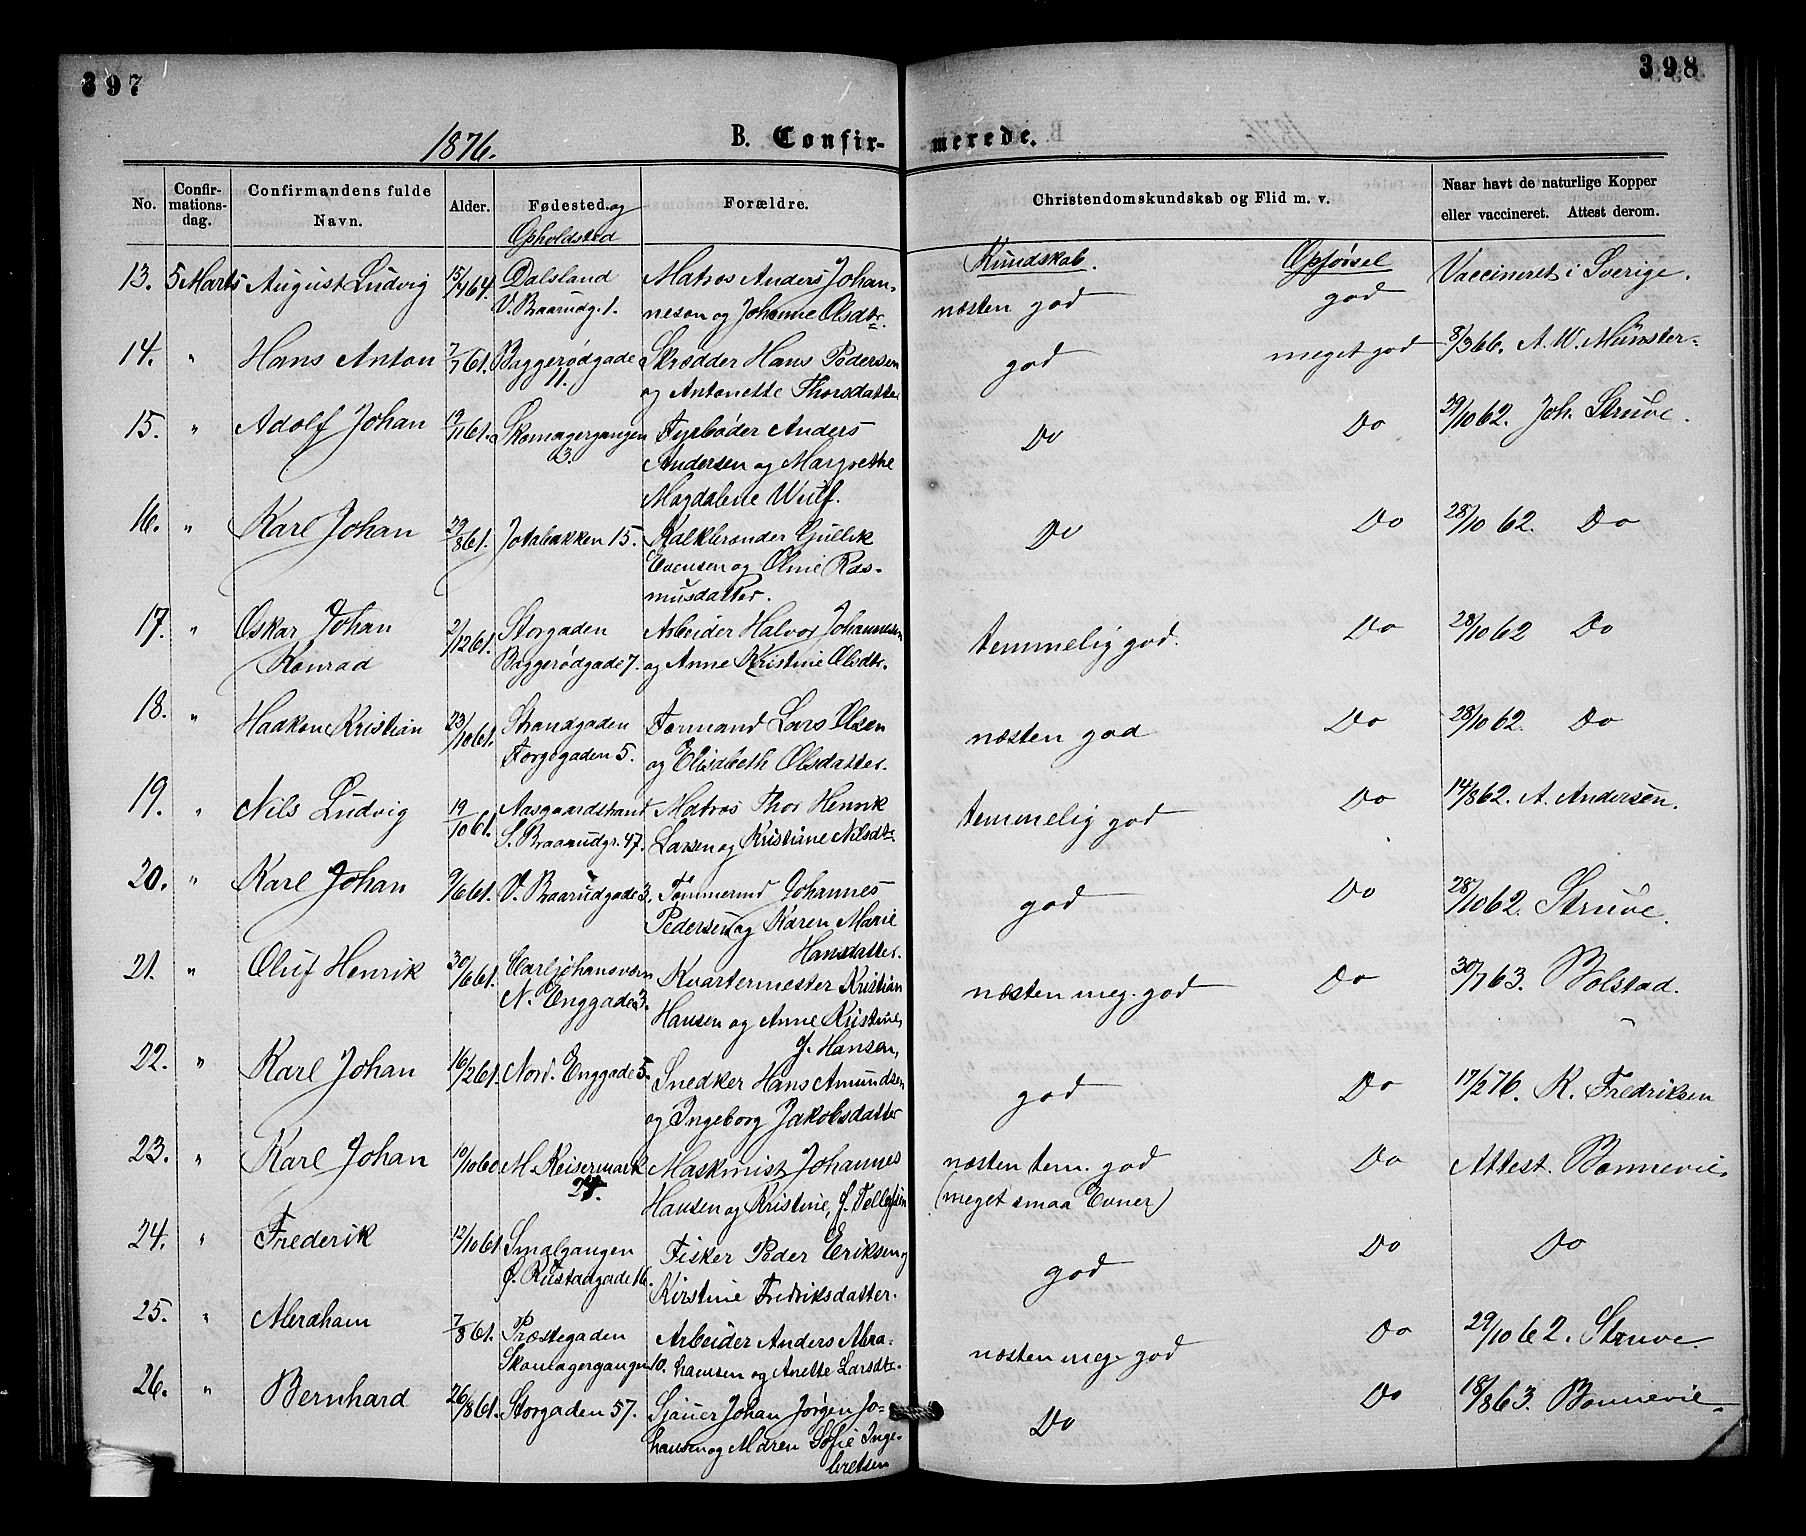 397
398
1876.
B. Confirmerede.
No.
Confirmationsdag.
Confirmandens fulde Navn.
Alder.
Fødested. og Opholdsted
Forældre.
Christendomskundskab og Flid m. v.
Naar havt de naturlige Kopper eller vaccineret. Attest derom.
Kundskab. Opførsel
13. 5 Marts August Ludvig 15/4 64. Dalsland Matros Anders Johan- Vaccineret i Sverige.
V. Baarudg. 1. neson og Johanne Olsdtr. næsten god god
14. " Hans Anton 7/7 61. Baggerødgade Skrædder Hans Pedersen god meget god 3/3 66. A. W. Münster.
11. og Antonette Thorsdatter
15. " Adolf Johan 19/11 61. Skomagergangen Fyrbøder Anders Do Do 29/10 62. Joh. Struve.
3. Andersen og Margrethe
Magdalene Wulf.
16. " Karl Johan 29/8 61. Jotabakken 15. Kalkbrænder Gullik Do Do 28/10 62. Do
Evensen og Oline Ras-
musdatter.
17. " Oskar Johan 2/12 61. Storgaden Arbeider Halvor Johannesen temmelig god. Do 28/10 62 Do
Konrad Baggerødgade 7. og Anne Kristine Olsdtr.
18. " Haakon Kristian 23/10 61. Strandgaden Formand Lars Olsen næsten god Do 28/10 62. Do
Torvegaden 5. og Elisabeth Olsdatter.
19. " Nils Ludvig 19/10 61. Aasgaardstrand Matros Thor Henrik temmelig god Do 14/8 62. A. Andersen.
S. Baarudgr. 47. Larsen og Kristiane Nilsdtr
20. " Karl Johan 9/6 61. V. Baarudgade 3. Tømmermd Johannes god Do 28/10 62. Struve.
Pedersen og Karen Marie
Hansdatter.
21. " Oluf Henrik 30/6 61. Carljohansværn Kvartermester Kristian næsten meg. god Do 30/7 63. Bolstad.
N. Enggade 3. Hansen og Anne Kristine,
f. Hansen,
22. " Karl Johan 16/2 61. Nord. Enggade 5. Snedker Hans Amundsen god Do 17/2 76. K. Fredriksen
og Ingeborg Jakobsdatter
23. " Karl Johan 10/10 60 M. Keisermark Maskinist Johannes næsten tem. god Do Attest. Bonnevie.
24. Hansen og Kristine, f. Tollefsen (meget smaa Evner)
24. " Frederik 12/10 61 Smalgangen Fisker Peder Eriksen og god Do Do
Ø. Rustadgade 16. Kirstine Fredriksdatter.
25. " Abraham 7/8 61. Præstegaden Arbeider Anders Abra- næsten meg. god Do 29/10 62. Struve.
Skomagergangen 10. hamsen og Anette Larsdtr.
26. " Bernhard 26/8 61. Storgaden 57. Sjauer Johan Jørgen Jo- Do Do 18/8 63. Bonnevie.
hansen og Maren Sofie Inge-
bretsen